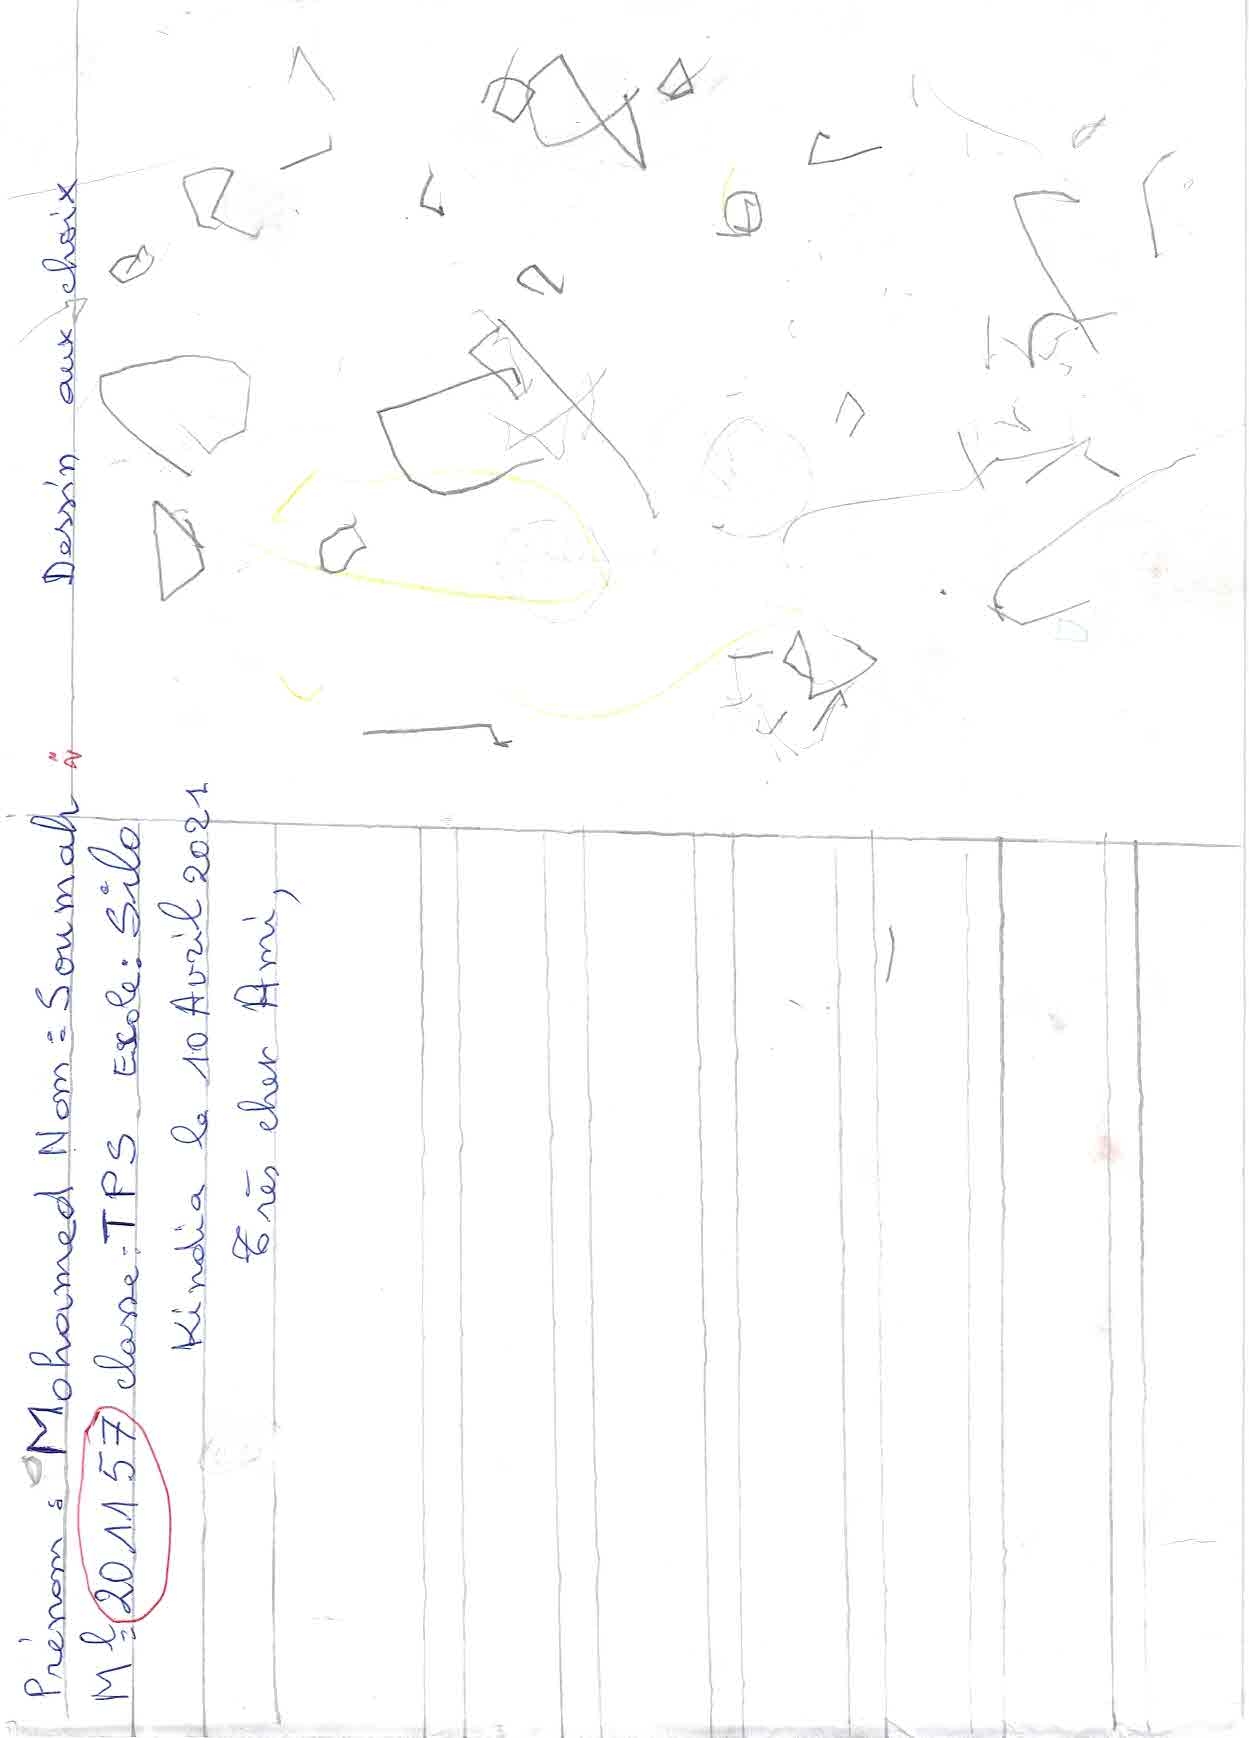 Prénom : Mohamed Nom : Soumah
Ml : 201157 classe : TPS Ecole : Silo
Kindia le 10 Avril 2021
Très cher Ami,
Dessin aux choix